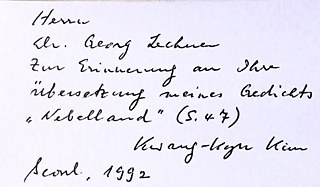 Herrn
Dr. Georg Lechner
Zur Erinnerung an Ihre
Übersetzung meines Gedichts
„Nebelland" (S. 47)
Kwang-Kyu Kim
Seoul, 1992